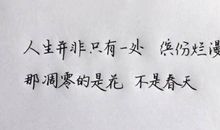 人生并非只有一处 缤纷烂漫
那凋零的是花 不是春天